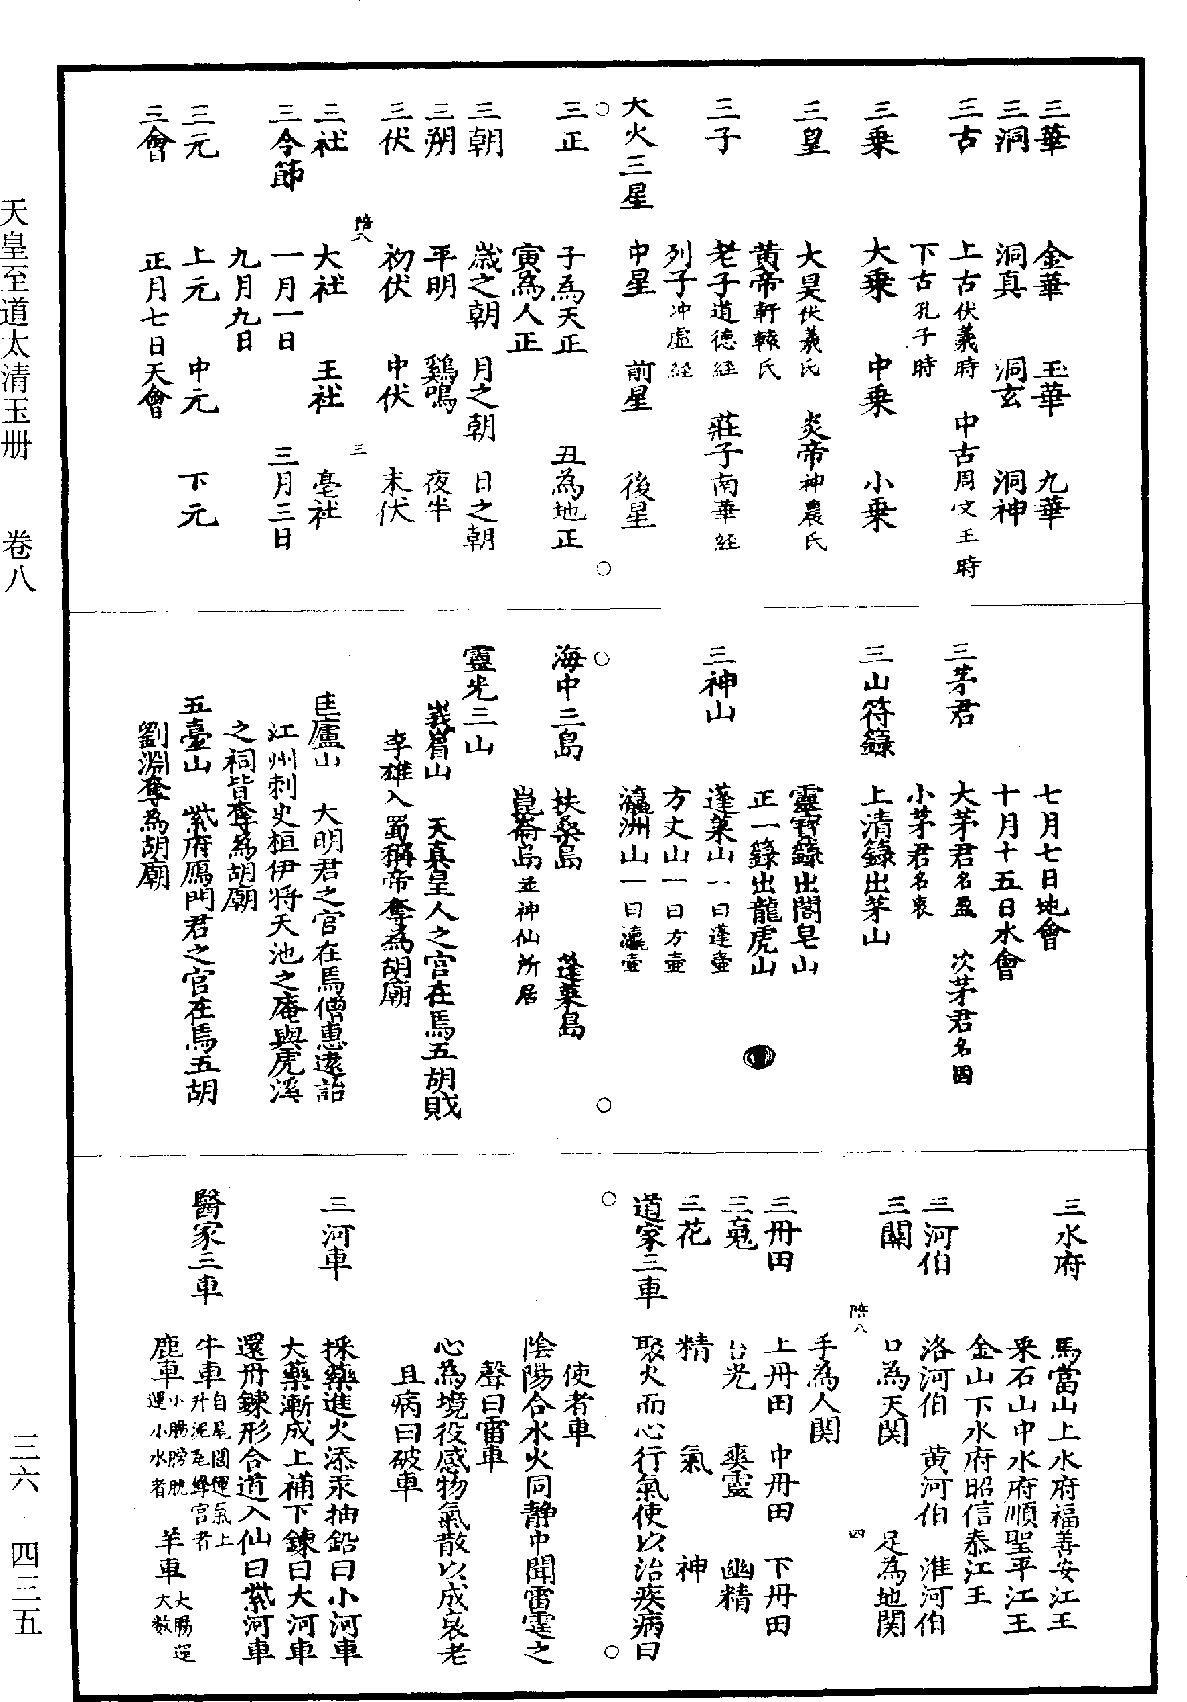 天皇至道太清玉冊　卷八　三六·四三五
三華　金華　玉華　九華
三洞　洞真　洞玄　洞神
三古　上古伏羲時　中古周文王時
下古孔子時
三乘　大乘　中乘　小乘
三皇　大昊伏羲氏　炎帝神農氏
黃帝軒轅氏
三子　老子道德經　莊子南華經
列子冲虛經
大火三星　中星　前星　後星
三正　子為天正　丑為地正
寅為人正
三朝　歲之朝　月之朝　日之朝
三朔　平明　鷄鳴　夜半
三伏　初伏　中伏　末伏
陪八　三
三社　大社　王社　亳社
三令節　一月一日　三月三日
九月九日
三元　上元　中元　下元
三會　正月七日天會
七月七日地會
十月十五日水會
三茅君　大茅君名盈　次茅君名固
小茅君名衷
三山符籙　上清籙出茅山
靈寶籙出閤皂山
正一籙出龍虎山
三神山　蓬萊山一曰蓬壺
方丈山一曰方壺
瀛洲山一曰瀛壺
海中三島　扶桑島　蓬萊島
崑崙島並神仙所居
靈光三山
峩眉山　天真皇人之宮在焉五胡賊
李雄入蜀稱帝奪為胡廟
匡廬山　大明君之宮在焉僧惠遠詒
江州刺史桓伊将天池之庵與虎溪
之祠皆奪為胡廟
五臺山　紫府鴈門君之宮在焉五胡
劉淵奪為胡廟
三水府　馬當山上水府福善安江王
釆石山中水府順聖平江王
金山下水府昭信泰江王
三河伯　洛河伯　黃河伯　淮河伯
三關　口為天関　足為地関
手為人関
陪八　四
三丹田　上丹田　中丹田　下丹田
三䰟　台光　爽靈　幽精
三花　精　氣　神
道家三車　聚火而心行氣使以治疾病曰
使者車
陰陽合水火同靜中聞雷霆之
聲曰雷車
心為境役感物氣散以成衰老
且病曰破車
三河車　採藥進火添汞抽鉛曰小河車
大藥漸成上補下鍊曰大河車
還丹鍊形合道入仙曰紫河車
醫家三車　牛車自尾閭運氣上升泥丸絳宮者　羊車大腸運大数
鹿車小腸膀胱運小水者